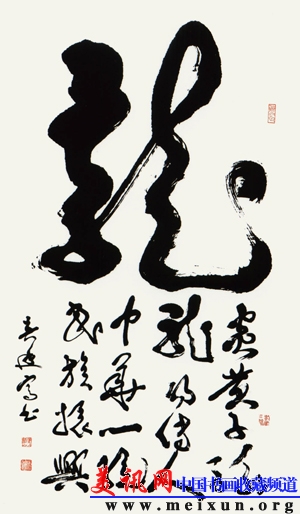 龍
炎黄子孫
龍的傳人
中華一
民族振興
美讯网
中国书画收藏频道
www.meixun.org